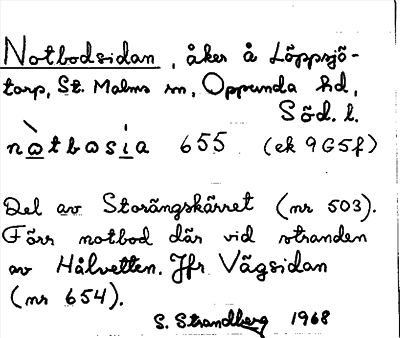 Notbodsidan, åker å Löppsjö-
torp, St. Malms sn, Oppunda hd,
Söd. l.
nòtbosia 655 (ek 9G5f)
Del av Storängskärret (nr 503).
Förr notbod där vid stranden
av Hålvetten. Jfr Vägsidan
(nr 654).
S. Strandberg 1968